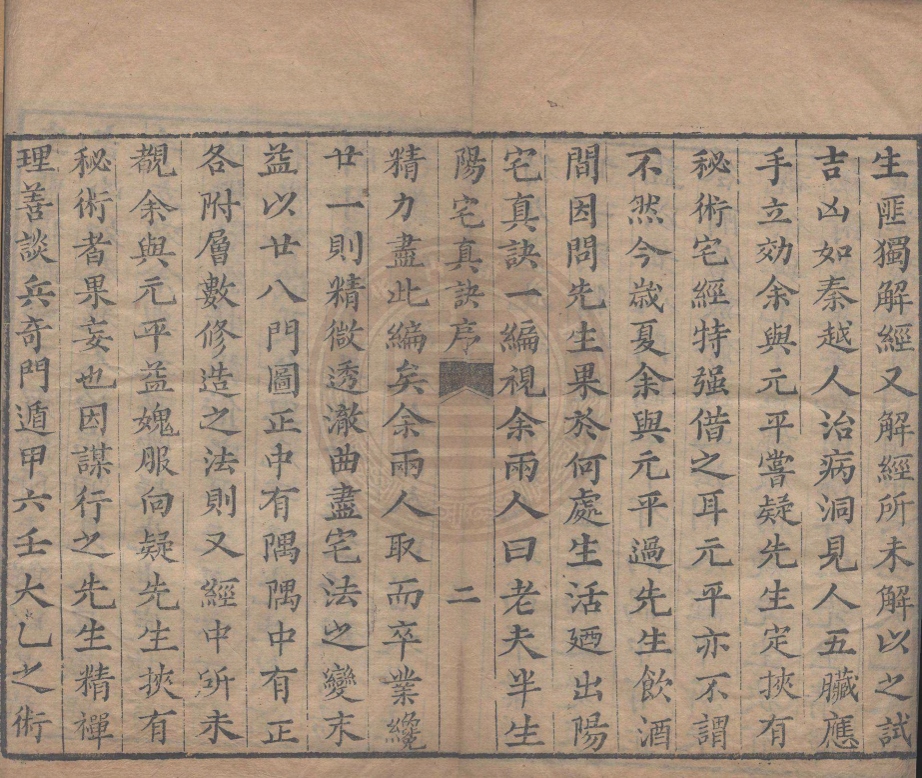 生匪獨解經又解經所未解以之試
吉凶如秦越人治病洞見人五臟應
手立効余與元平嘗疑先生定挾有
秘術宅經特强借之耳元平亦不謂
不然今歲夏余與元平過先生飲酒
間因問先生果於何處生活廼出陽
宅真訣一編視余兩人曰老夫半生
陽宅真訣序 二
精力盡此編矣余兩人取而卒業纔
廿一則精微透澈曲盡宅法之變末
益以廿八門圖正中有隅隅中有正
各附層數修造之法則又經中所未
覩余與元平益媿服向疑先生挾有
秘術者果妄也因謀行之先生精禪
理善談兵奇門遁甲六壬大乙之術